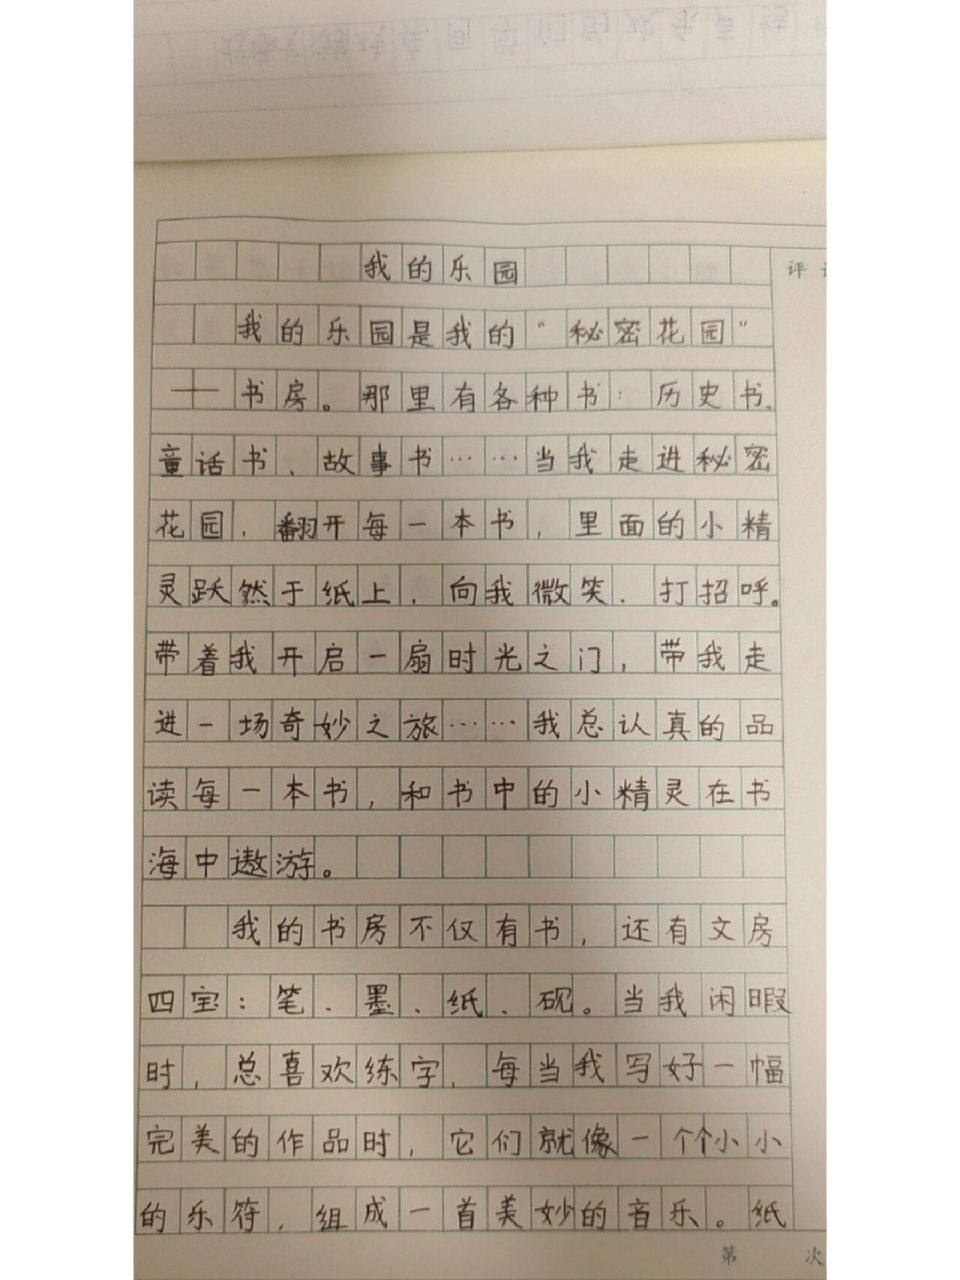 我的乐园
我的乐园是我的“秘密花园”
——书房。那里有各种书：历史书、
童话书、故事书……当我走进秘密
花园，翻开每一本书，里面的小精
灵跃然于纸上，向我微笑、打招呼。
带着我开启一扇时光之门，带我走
进一场奇妙之旅……我总认真的品
读每一本书，和书中的小精灵在书
海中遨游。
我的书房不仅有书，还有文房
四宝：笔、墨、纸、砚。当我闲暇
时，总喜欢练字，每当我写好一幅
完美的作品时，它们就像一个个小小
的乐符，组成一首美妙的音乐。纸
评
第 次